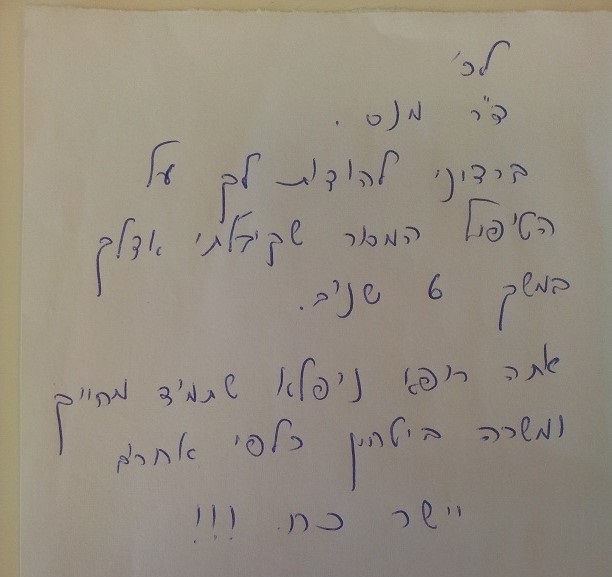 לכ'
ד"ר מנס.
ברצוני להודות לך על
הטיפול המסור שקיבלתי אצלך
במשך 6 שנים.
אתה רופא ניפלא שתמיד מחייך
ומשרה ביטחון כלפי אחרים
יישר כח !!!